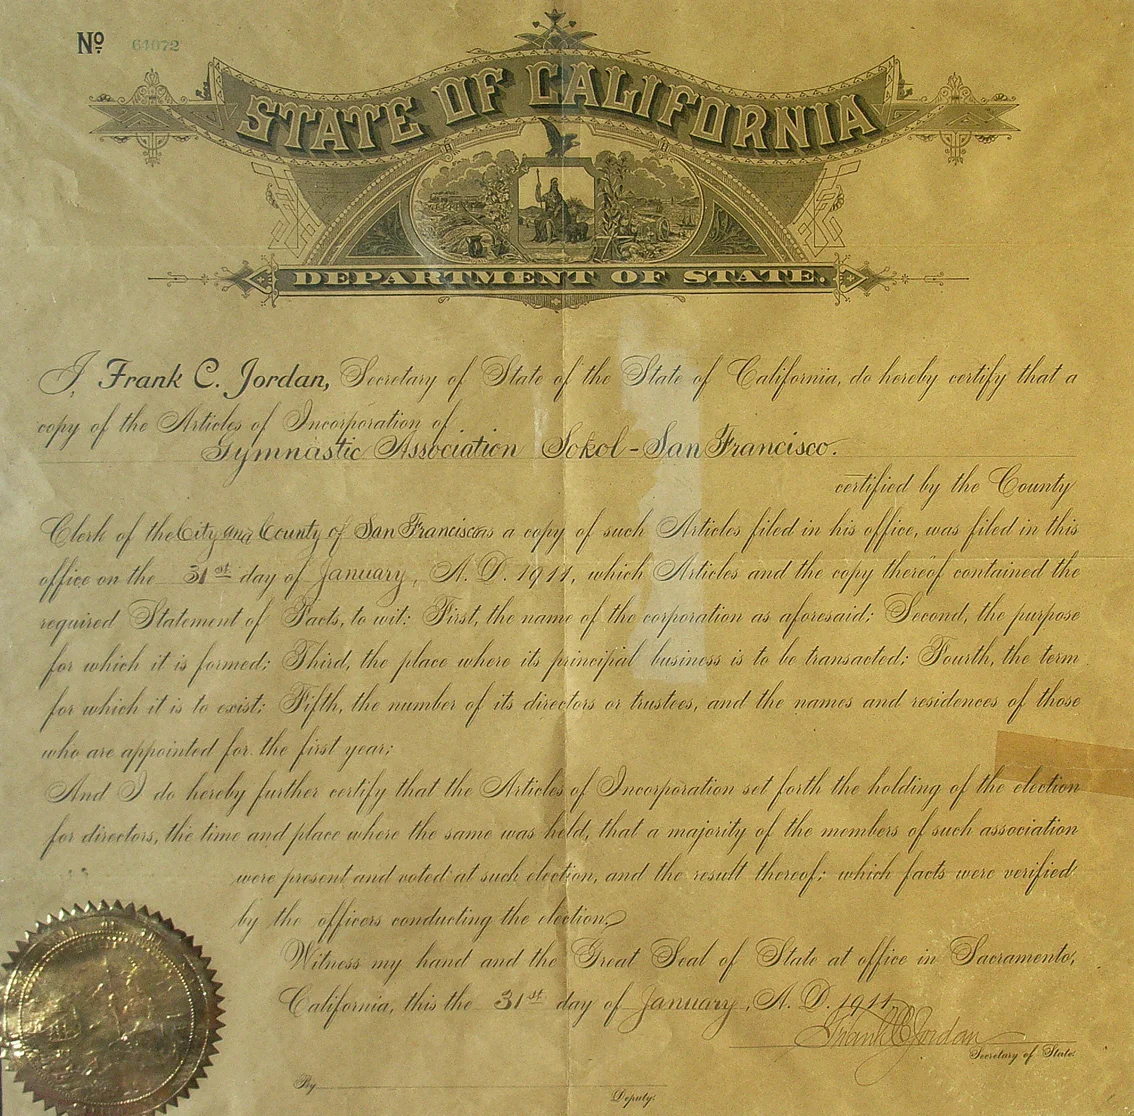 Nº 64072
STATE OF CALIFORNIA
DEPARTMENT OF STATE.
I, Frank C. Jordan, Secretary of State of the State of California, do hereby certify that a
copy of the Articles of Incorporation of
Gymnastic Association Sokol-San Francisco.
certified by the County
Clerk of the City and County of San Francisco as a copy of such Articles filed in his office, was filed in this
office on the 31st day of January, A. D. 1911, which Articles and the copy thereof contained the
required Statement of Facts, to wit: First, the name of the corporation as aforesaid; Second, the purpose
for which it is formed; Third, the place where its principal business is to be transacted; Fourth, the term
for which it is to exist; Fifth, the number of its directors or trustees, and the names and residences of those
who are appointed for the first year;
And I do hereby further certify that the Articles of Incorporation set forth the holding of the election
for directors, the time and place where the same was held, that a majority of the members of such association
were present and voted at such election, and the result thereof; which facts were verified
by the officers conducting the election.
Witness my hand and the Great Seal of State at office in Sacramento,
California, this the 31st day of January, A. D. 1911.
Frank C. Jordan
Secretary of State.
By
Deputy.